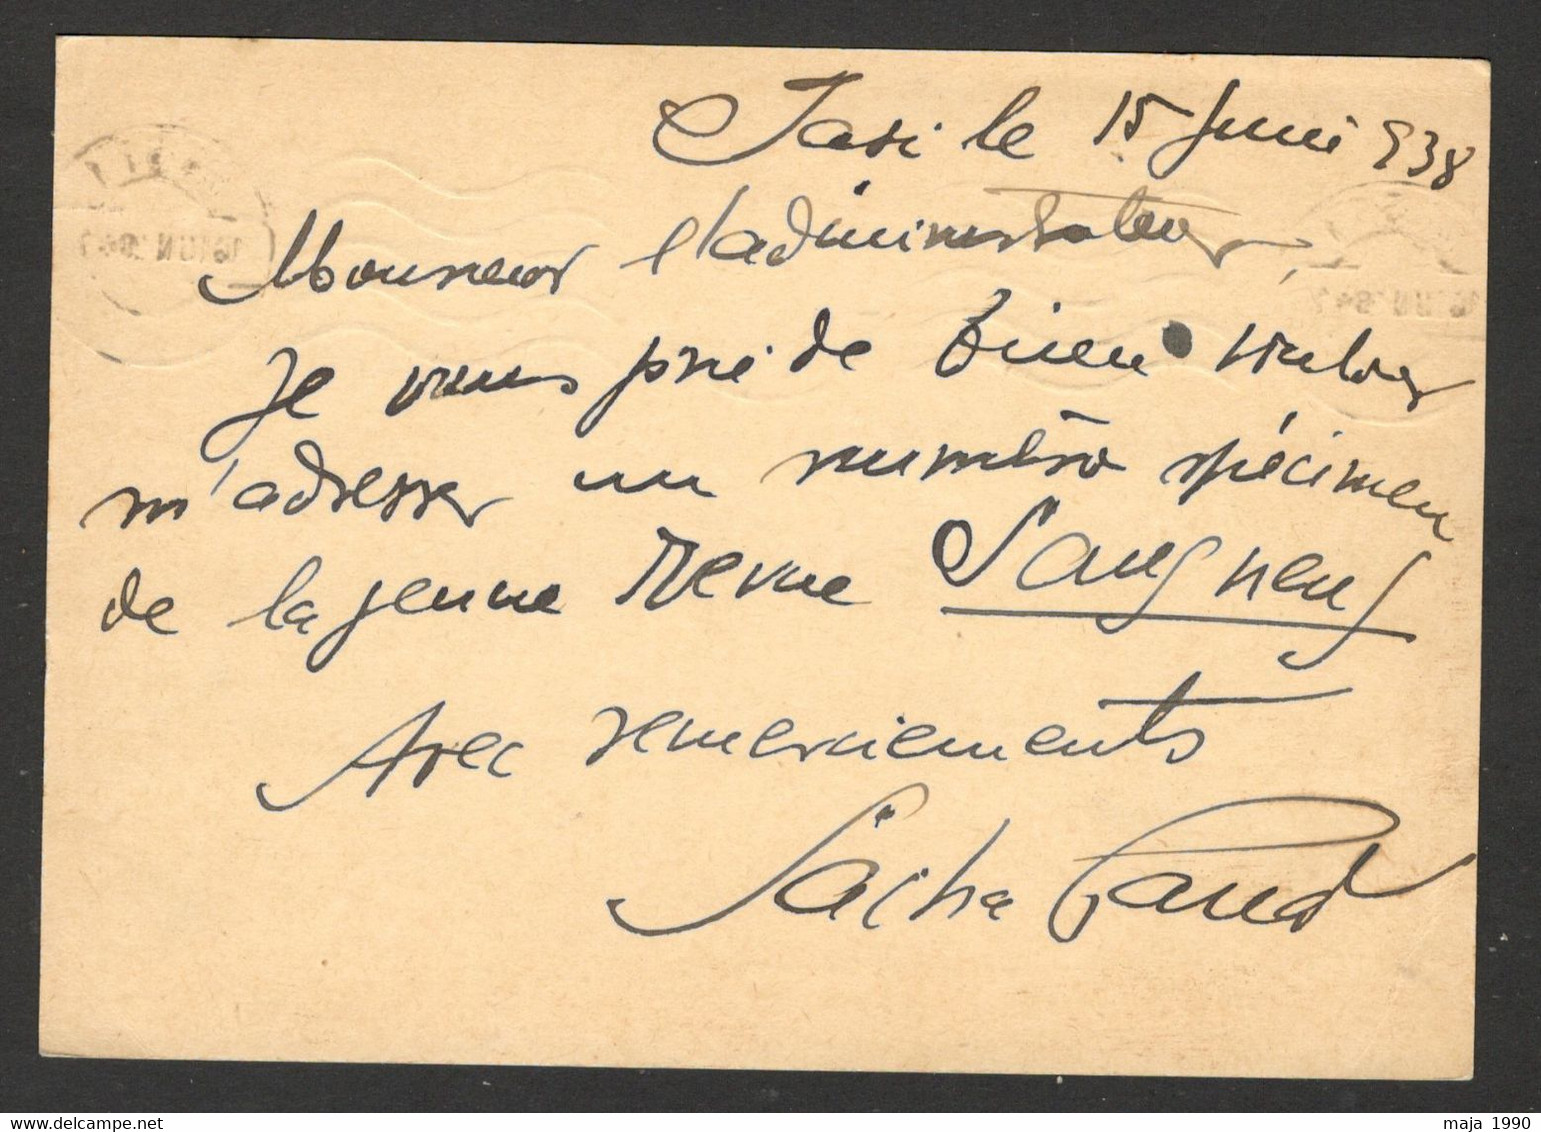 Iasi le 15 Juni 938
Monsieur l'administrateur,
Je vous prie de bien vouloir
m'adresser un numéro spécimen
de la jeune Revue Sang neuf
Avec remerciements
Sacha
maja 1990